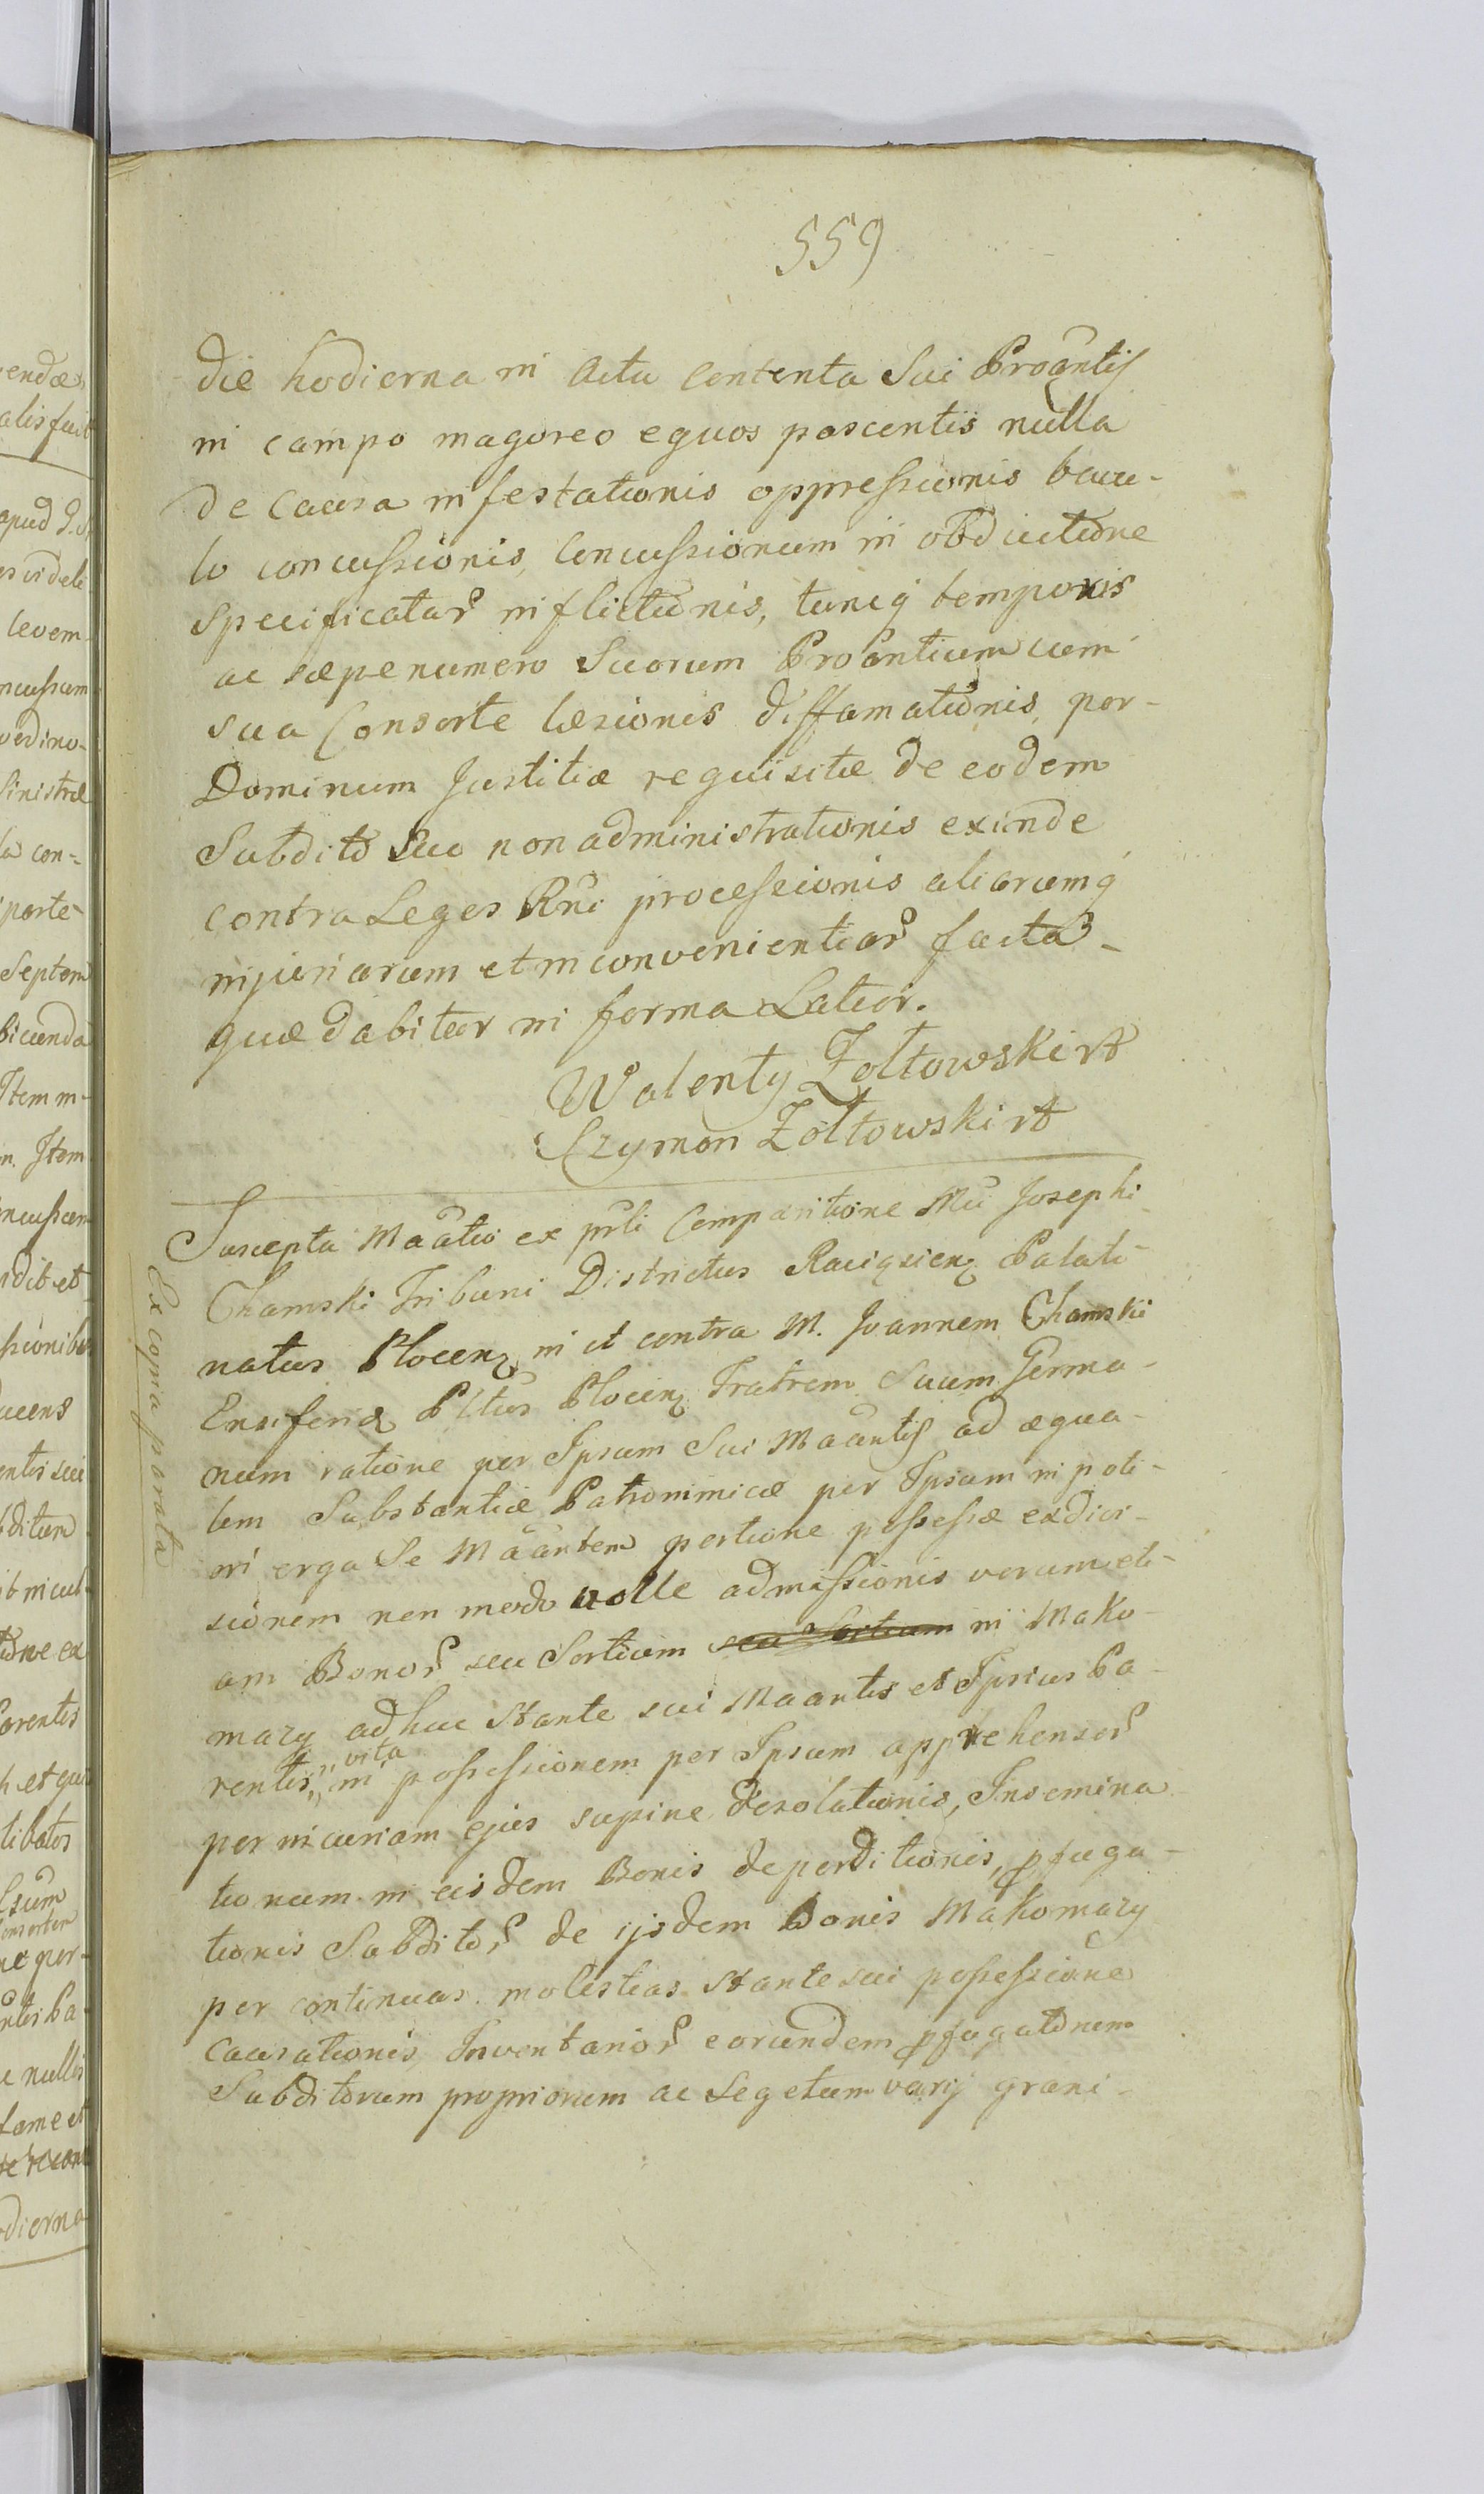 559
die hodierna in Actu contenta Sui Proantis
in campo magoreo equos pascentis nulla
de Causa infestationis oppressionis bacu-
lo concussionis, concussionum in obductione
specificatar inflictionis, tuncq temporis
ac sæpenumero Suorum Proantium cum
sua Consorte læsionis diffamationis, per
Dominum Justitiæ requisitæ de eodem
Subdito Suo non administrationis exinde
contra Leges Rni processionis aliarumq
injuriarum et inconvenientiar facta
quæ dabitur in forma Latior.
Walenty Zołtowski rt
Szymon Zołtowski rt
Suscepta Maatio ex prli Comparitione Mci Josephi
Chamski Tribuni Districtus Raciązien Palati-
natus Plocen in et contra M. Joannem Chamski
Ensiferum Pltus Plocen Fratrem Suum Germa-
num ratione per Ipsum Sui Maantis ad æqua-
lem Substantiæ Patronimicæ per Ipsum in poti-
ori erga Se Maantem portione possessæ exdivi-
sionem non modo nolle admissionis verumeti-
am Bonor seu Sortium seu Sortium in Mako-
mazy adhuc stante sui Maantis et Ipsius Pa-
rentis, vita in possessionem per Ipsum apprehensor
per incuriam ejus supine desolationis, Insemina
tionum in eisdem Bonis deperditionis, pfuga-
tionis Subditor de ijsdem Bonis Makomazy
per continuas molestias stante sui possessione
Causationis, Inventarior eorundem pfugatonum
Subditorum propriorum ac Segetum varij grani-
Ex copia porata
endæ
alisfuit
apud
levem
sinistræ
la con-
parte-
Septem
Item in-
n. Item
ssionibus
ducens
bditum
Parentis
h et qui
tibatos
Consortem
e nullis
fame et
odierna